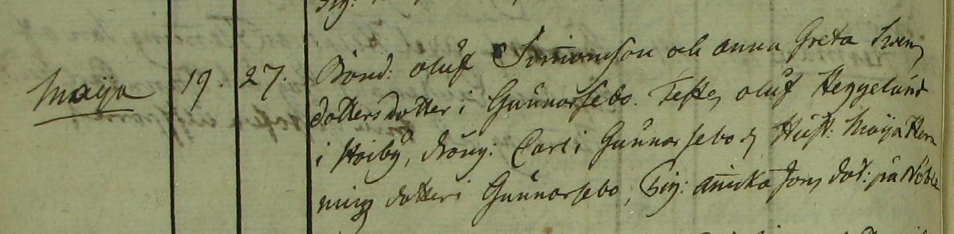 Maija 19. 27. Bönd: Oluf Simonsson och anna Greta Svens
dotters dotter i Gunnarsebo. Test, oluf Heggelund
i Höiby, dräng: Carl i Gunnarsebo, Hust: Maija Hem
mings dotter i Gunnarsebo, Pig: anicka Jons dot: på